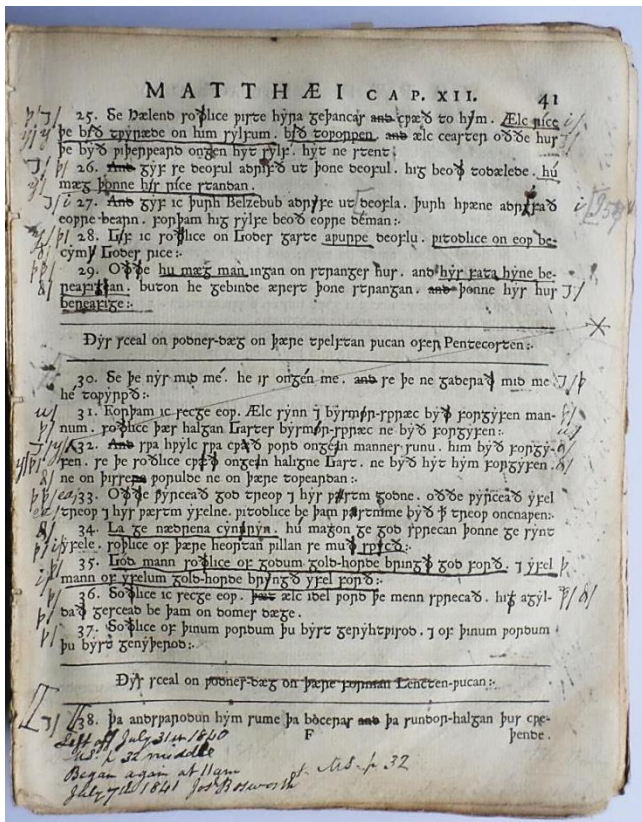 MATTHÆI CAP. XII. 41
25. Se Hælend soðlice wiste hyra geþancas and cwæð to hym. Ælc rice
þe byð twyræde on him sylfum. byð toworpen. and ælc ceaster oððe hus
þe byð wiþerweard ongen hyt sylf. hyt ne stent.
26. And gyf se deoful adrifð ut þone deoful. hig beoð todælede. hú
mæg þonne hys rice standan.
27. And gyf ic þurh Belzebub adryfe ut deofla. þurh hwæne adrifað
eowre bearn. forþam hig sylfe beoð eowre deman:.
28. Gif ic soðlice on Godes gaste awurpe deoflu. witodlice on eow be-
cymð Godes rice:.
29. Oððe hu mæg man ingan on stranges hus. and hys fata hyne be-
reafigan. buton he gebinde ærest þone strangan. and þonne hys hus
bereafige:.
Ðys sceal on wodnes-dæg on þære twelftan wucan ofer Pentecosten:.
30. Se þe nys mid mé. he is ongén me. and se þe ne gaderað mid me
he towyrpð:.
31. Forþam ic secge eow. Ælc synn ⁊ bysmor-spræc byð forgyfen man-
num. soðlice þæs halgan Gastes bysmor-spræc ne byð forgyfen:.
32. And swa hwylc swa cwæð word ongen mannes sunu. him byð forgy-
fen. se þe soðlice cwæð ongein haligne Gast. ne byð hyt hym forgyfen.
ne on þissere worulde ne on þære toweardan:.
33. Oððe wyrceað god treow ⁊ hys wæstm godne. oððe wyrceað yfel
treow ⁊ hys wæstm yfelne. witodlice be þam wæstme byð ꝥ treow oncnawen:.
34. La ge nædrena cynrynn. hú magon ge god sprecan þonne ge synt
yfele. soþlice of þære heortan willan se muð spycð:.
35. God mann soðlice of godum gold-horde bringð god forð. ⁊ yfel
mann of yfelum gold-horde bringð yfel forð:.
36. Soðlice ic secge eow. þæt ælc idel word þe menn sprecað. hig agyl-
dað gescead be þam on domes dæge.
37. Soðlice of þinum wordum þu byst gerihtwisod. ⁊ of þinum wordum
þu byst genyþerod:.
Ðys sceal on wodnes-dæg on þære forman Lencten-wucan:.
38. Þa andswarodun hym sume þa boceras and þa sundor-halgan þus cwe-
F þende.
Left off July 31st 1840
MS. p 32 middle
Began again at 11am at MS. p 32
July 7th 1841 Jos Bosworth